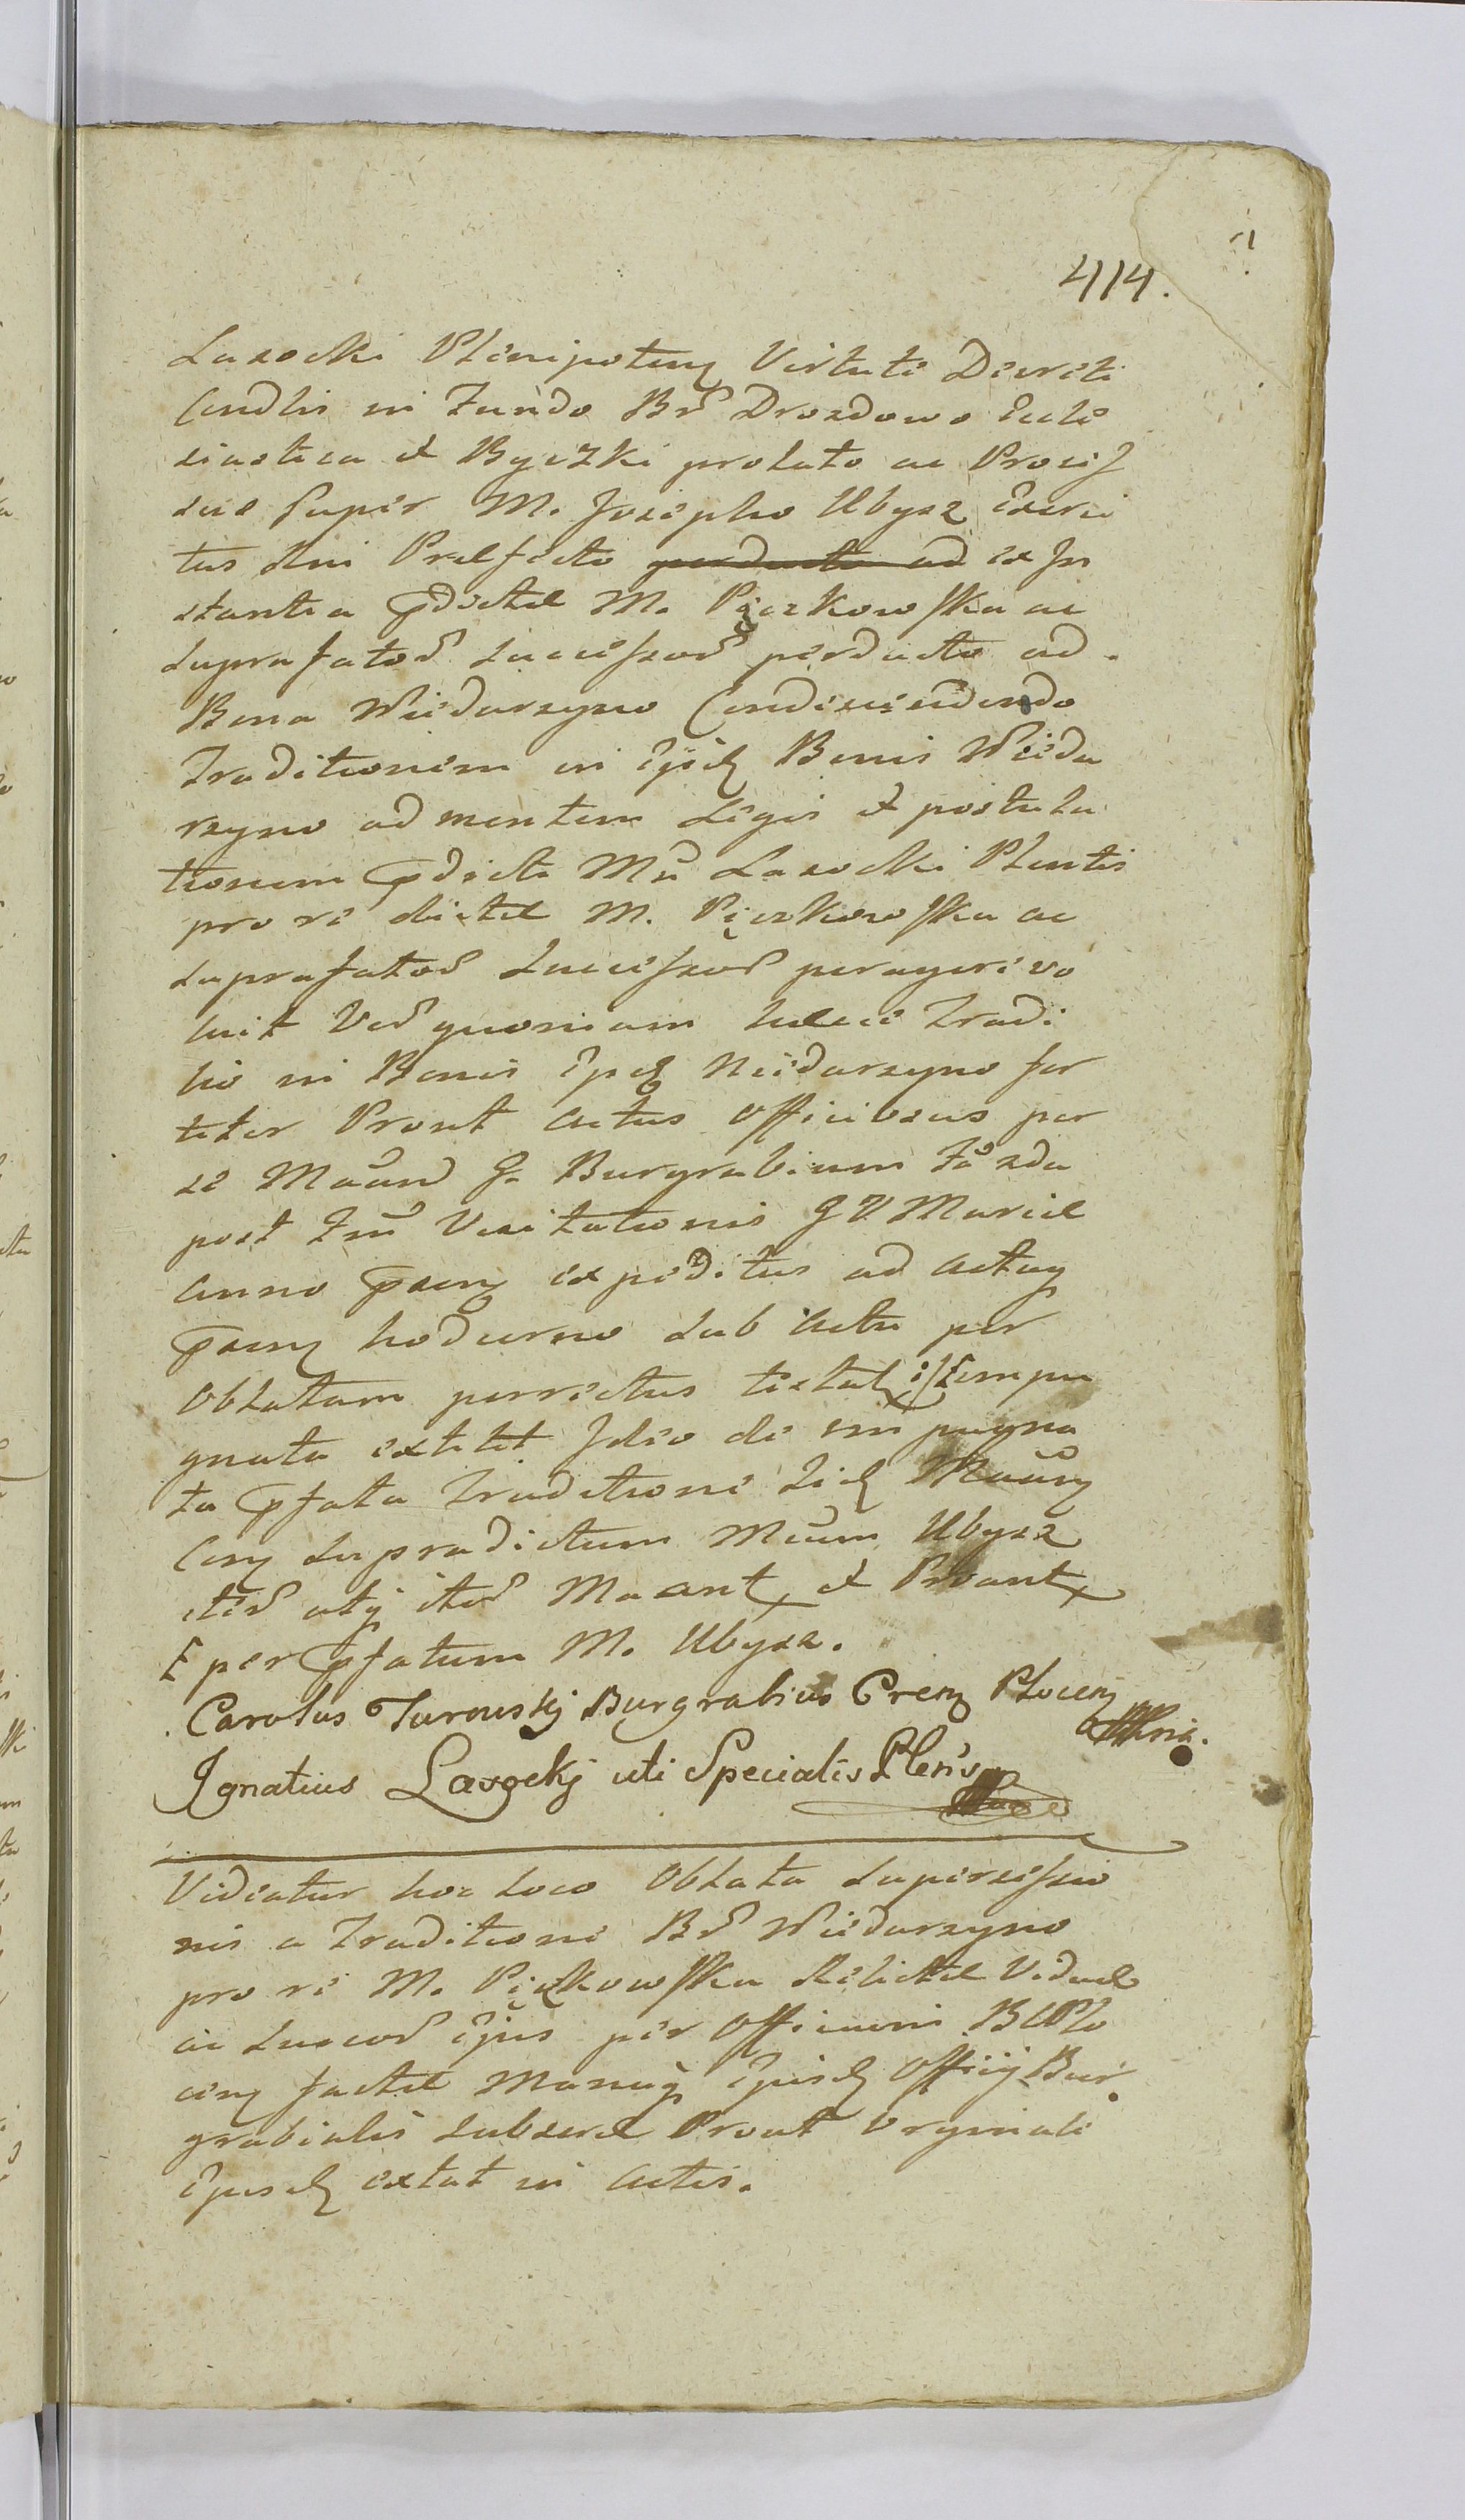 414.
Lasocki Plenipotens Virtute Decreti
Condlis in Fundo Br̃ Drozdowo Eccle
siastica et Byczki prolato ac Process
sus super M. Josepho Ubysz Exerci
tus Regni Praefecto perducto ad ex In
stantia pdictae M. Pęczkowska ac
suprafator̃ Successor̃ perducto ad
Bona Niedarzyno Condescendendo
Traditionem in Ijsdem Bonis Nieda
rzyno ad mentem Legis et postula
tionem pdicti Mci Lasocki Plentis
pro re dictae M. Pęczkowska ac
suprafator̃ Successor̃ peragere vo
luit Ver̃ quoniam haecce Tradi
tio in Bonis Ipsis Niedarzyno for
titer Prout Actus Officiosus per
se Maand G. Burgrabium Fa 2da
post Fm̃ Visitationis B V Mariae
Anno praesen expeditus ad Actus
praesen hodierno sub Actu per
Oblatam porrectus testatur impu
gnata extitit Ideo de impugna
ta pfata Traditione Idem
Con supradictum Mcum Ubysz
iter̃ atq iter̃ Maant et Proant
per pfatum M. Ubysz.
Carolus Turouskj Burgrabius Cren Plocen
mpria.
Ignatius Lasockj uti Specialis Plen's
Videatur hoc loco Oblata supersessio
nis a Traditione Br̃ Niedarzyno
pro re M. Pęczkowska Relictae Viduae
ac Succor̃ Ejus per Officium BCPlo
cen factae Manuq Ejusdem Officij Bur
grabialis subscrae Prout Orginale
Ejusdem extat in Actis.